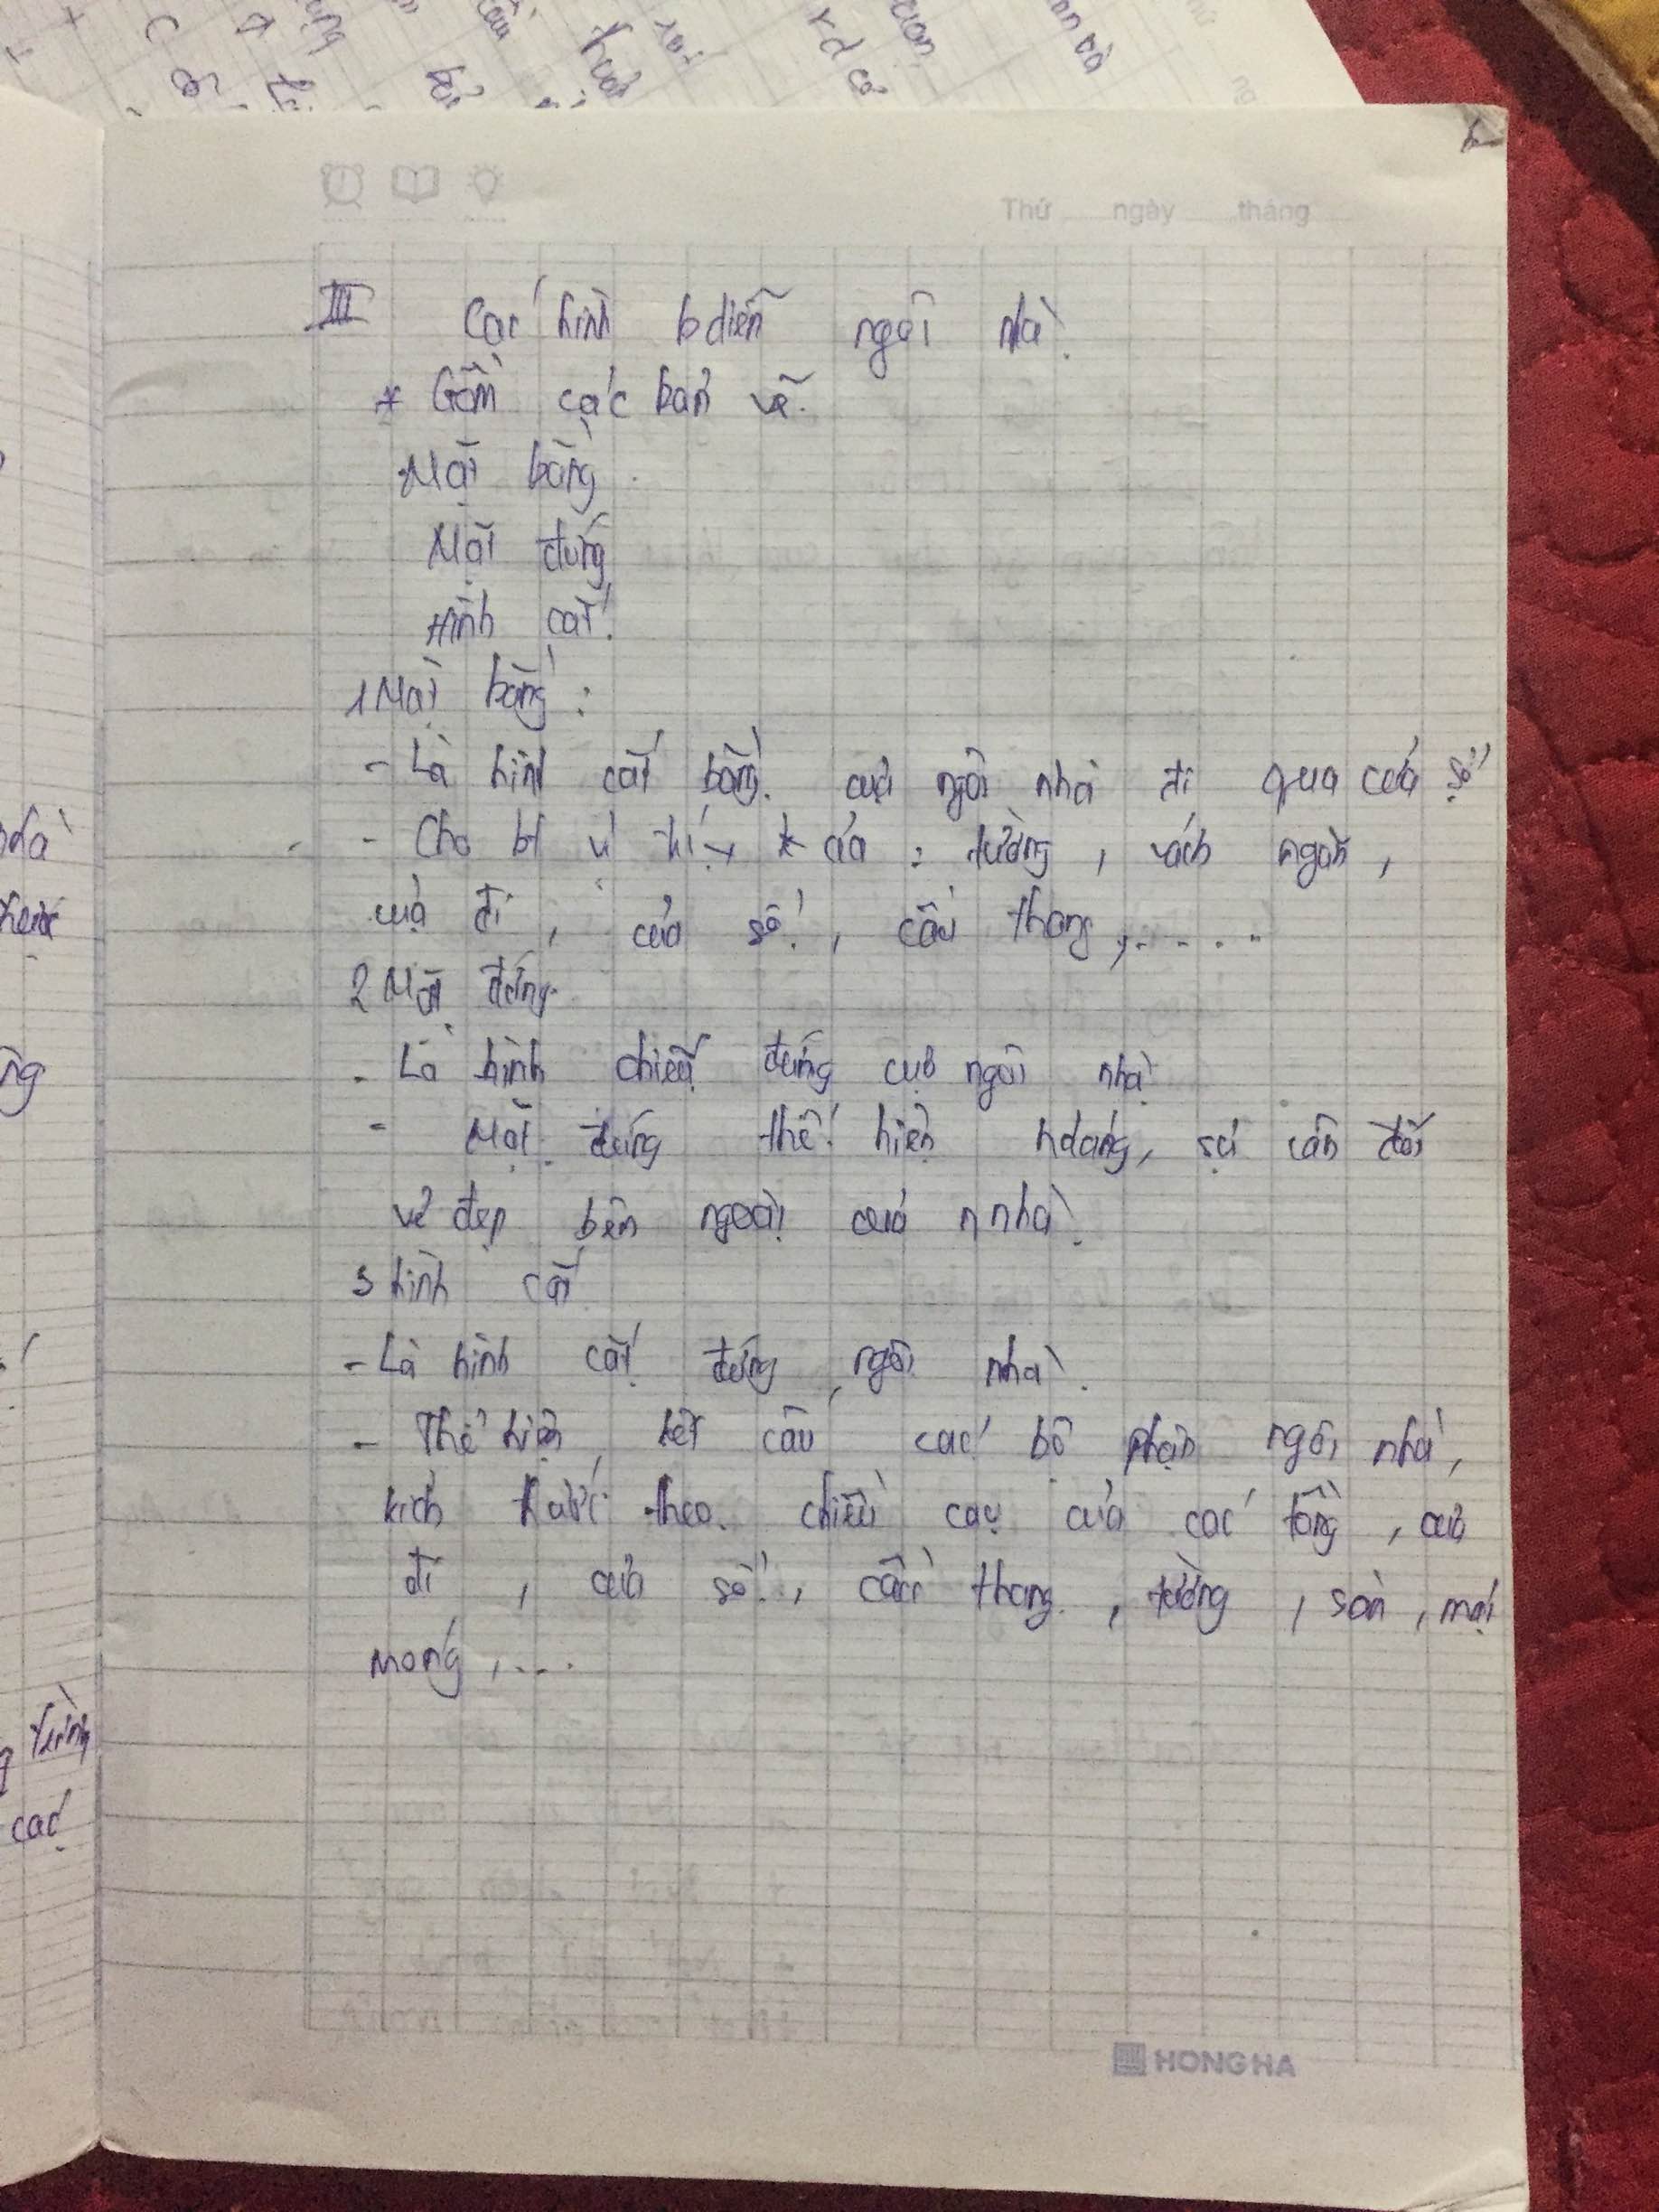 Thứ ngày tháng
III Các hình b diễn ngôi nhà.
* Gồm các bản vẽ.
Mặt bằng
Mặt đứng
Hình cắt.
1 Mặt bằng:
- Là hình cắt bằng của ngôi nhà đi qua cửa sổ
- Cho bt vị trí, của: tường, vách ngăn,
cửa đi, cửa sổ, cầu thang,.....
2 Mặt đứng.
- Là hình chiếu đứng của ngôi nhà
- Mặt đứng thể hiện hdáng, sự cân đối
vẻ đẹp bên ngoài của n nhà.
3 hình cắt
- Là hình cắt đứng ngôi nhà.
- Thể hiện kết cấu các bộ phận ngôi nhà,
kích thước theo chiều cao của các tầng, cửa
đi, cửa sổ, cầu thang, tường, sàn, mái
móng,....
HONG HA